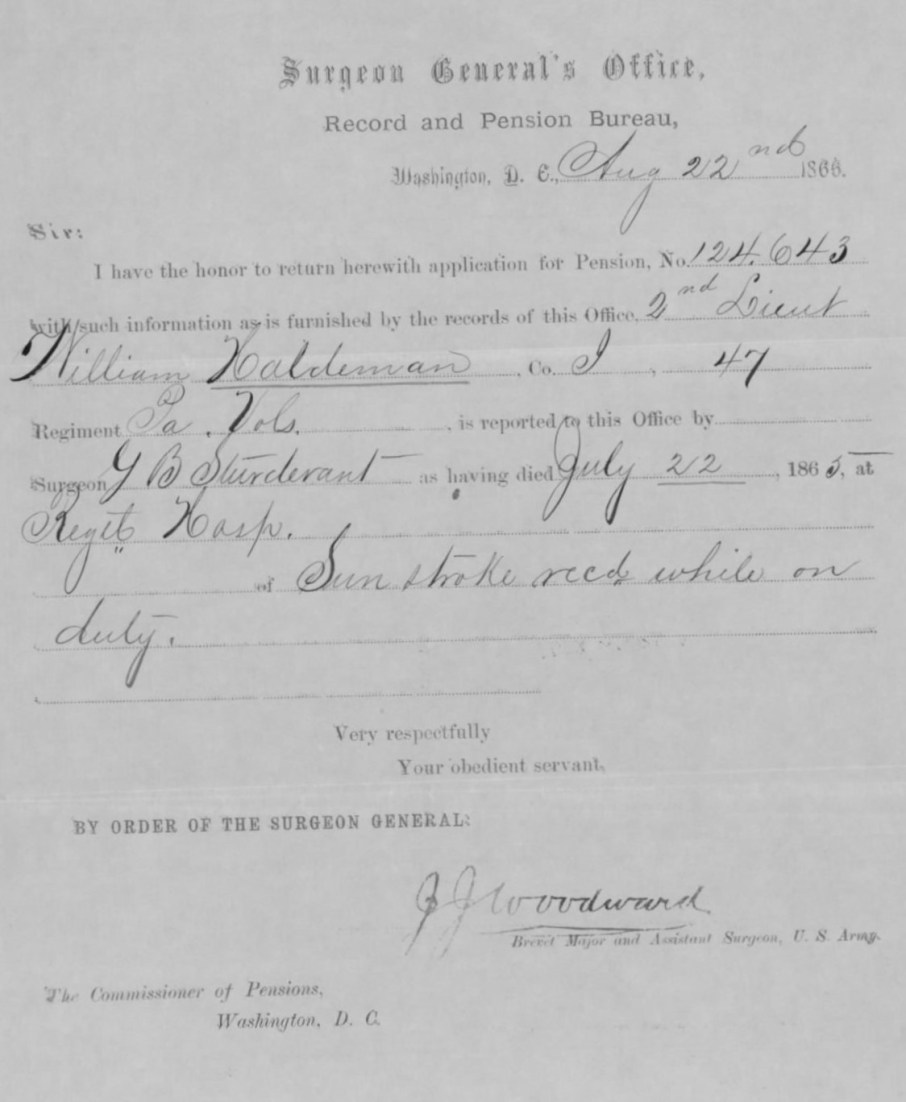 Surgeon General's Office,
Record and Pension Bureau,
Washington, D. C., Aug 22nd 1866.
Sir:
I have the honor to return herewith application for Pension, No. 124.643
with such information as is furnished by the records of this Office. 2nd Lieut
William Haldeman, Co. I, 47
Regiment Pa. Vols., is reported to this Office by
Surgeon Y B Sturdevant as having died July 22, 1865, at
Regt Hosp.
of Sun stroke recd while on
duty.
Very respectfully
Your obedient servant,
BY ORDER OF THE SURGEON GENERAL:
J J Woodward
Brevet Major and Assistant Surgeon, U. S. Army.
The Commissioner of Pensions,
Washington, D. C.